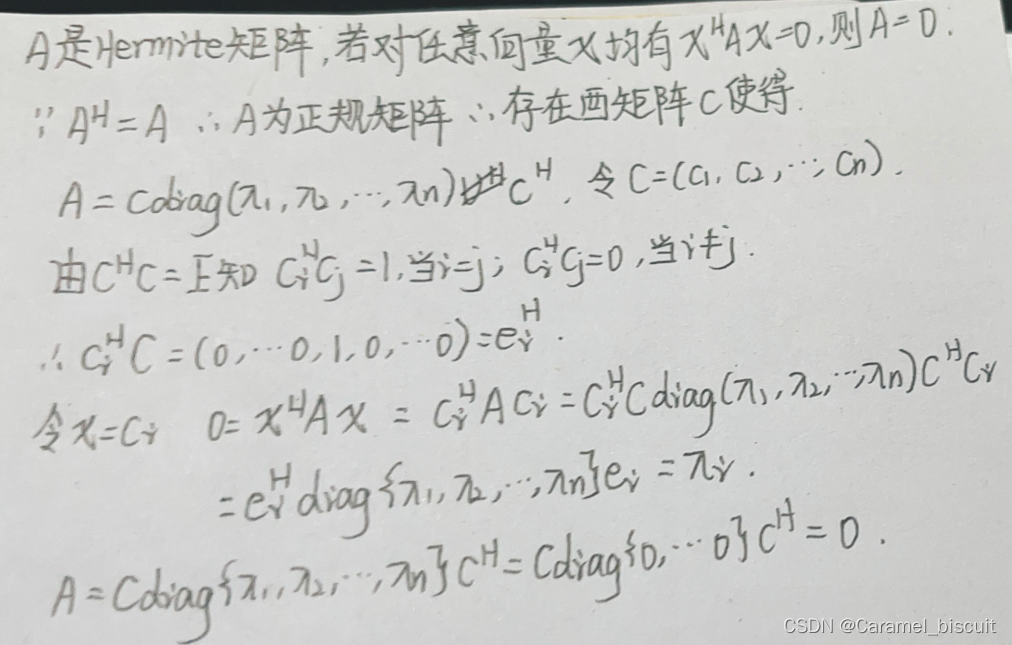 A是Hermite矩阵,若对任意向量x均有xᴴAx=0,则A=0.
∵Aᴴ=A ∴A为正规矩阵∴存在酉矩阵C使得.
A=Cdiag(λ1,λ2,…,λn)Cᴴ. 令C=(c1,c2,…,cn).
由CᴴC=I知 ciᴴcj=1,当i=j; ciᴴcj=0,当i≠j.
∴ciᴴC=(0,…0,1,0,…0)=eiᴴ.
令x=ci 0=xᴴAx=ciᴴAci=ciᴴCdiag(λ1,λ2,…,λn)Cᴴci
=eiᴴdiag{λ1,λ2,…,λn}ei=λi.
A=Cdiag{λ1,λ2,…,λn}Cᴴ=Cdiag{0,…0}Cᴴ=0.
CSDN @Caramel_biscuit